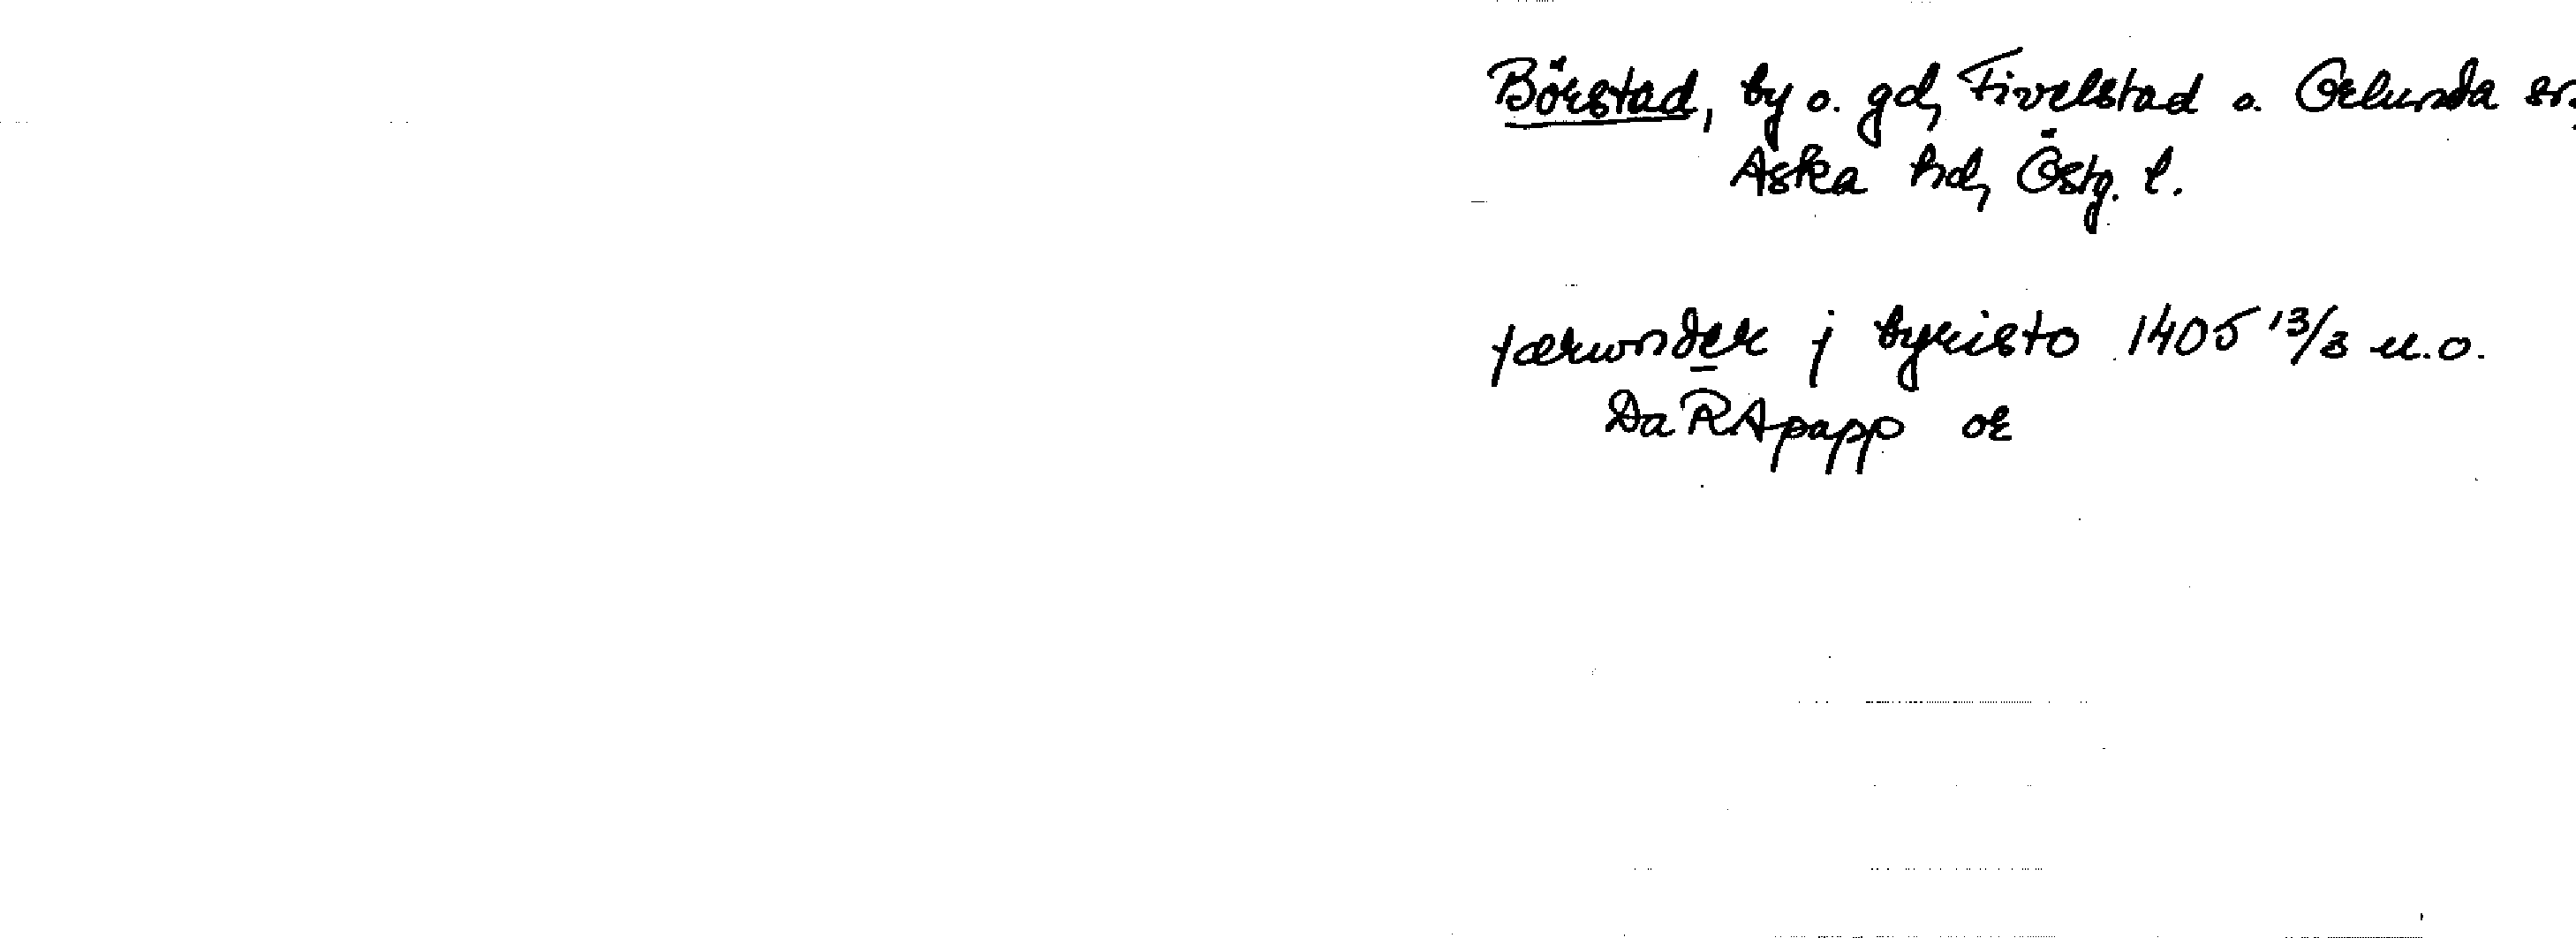 Börstad, by o. gd, Fivelstad o. Orlunda sn,
Aska hd, Östg. l.
jærunder j byristo 1405 13/3 u.o.
Da RApapp or